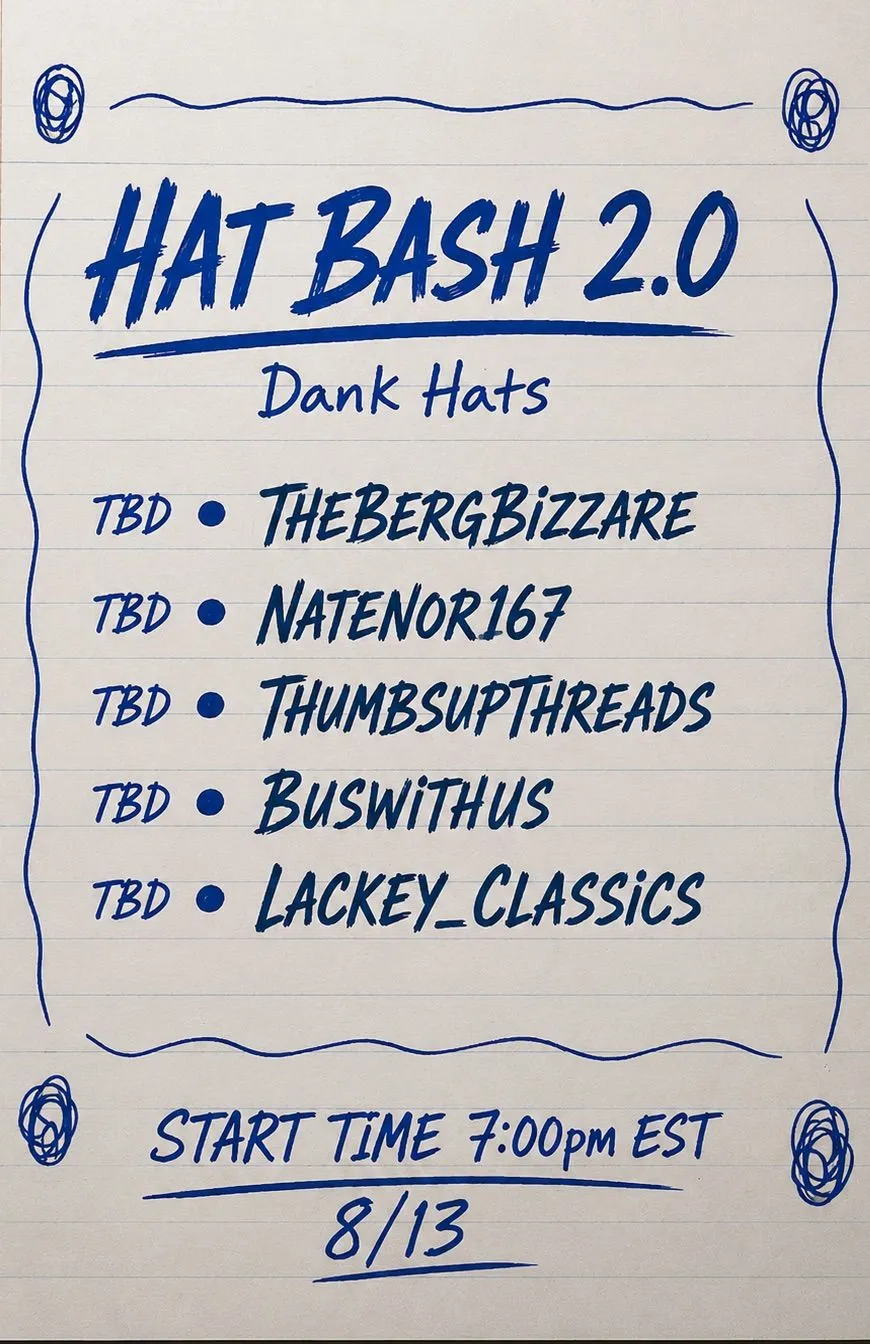 HAT BASH 2.0
Dank Hats
TBD • THEBERGBiZZARE
TBD • NATENOR167
TBD • THUMBSUPTHREADS
TBD • BUSWiTHUS
TBD • LACKEY_CLASSiCS
START TiME 7:00pm EST
8/13